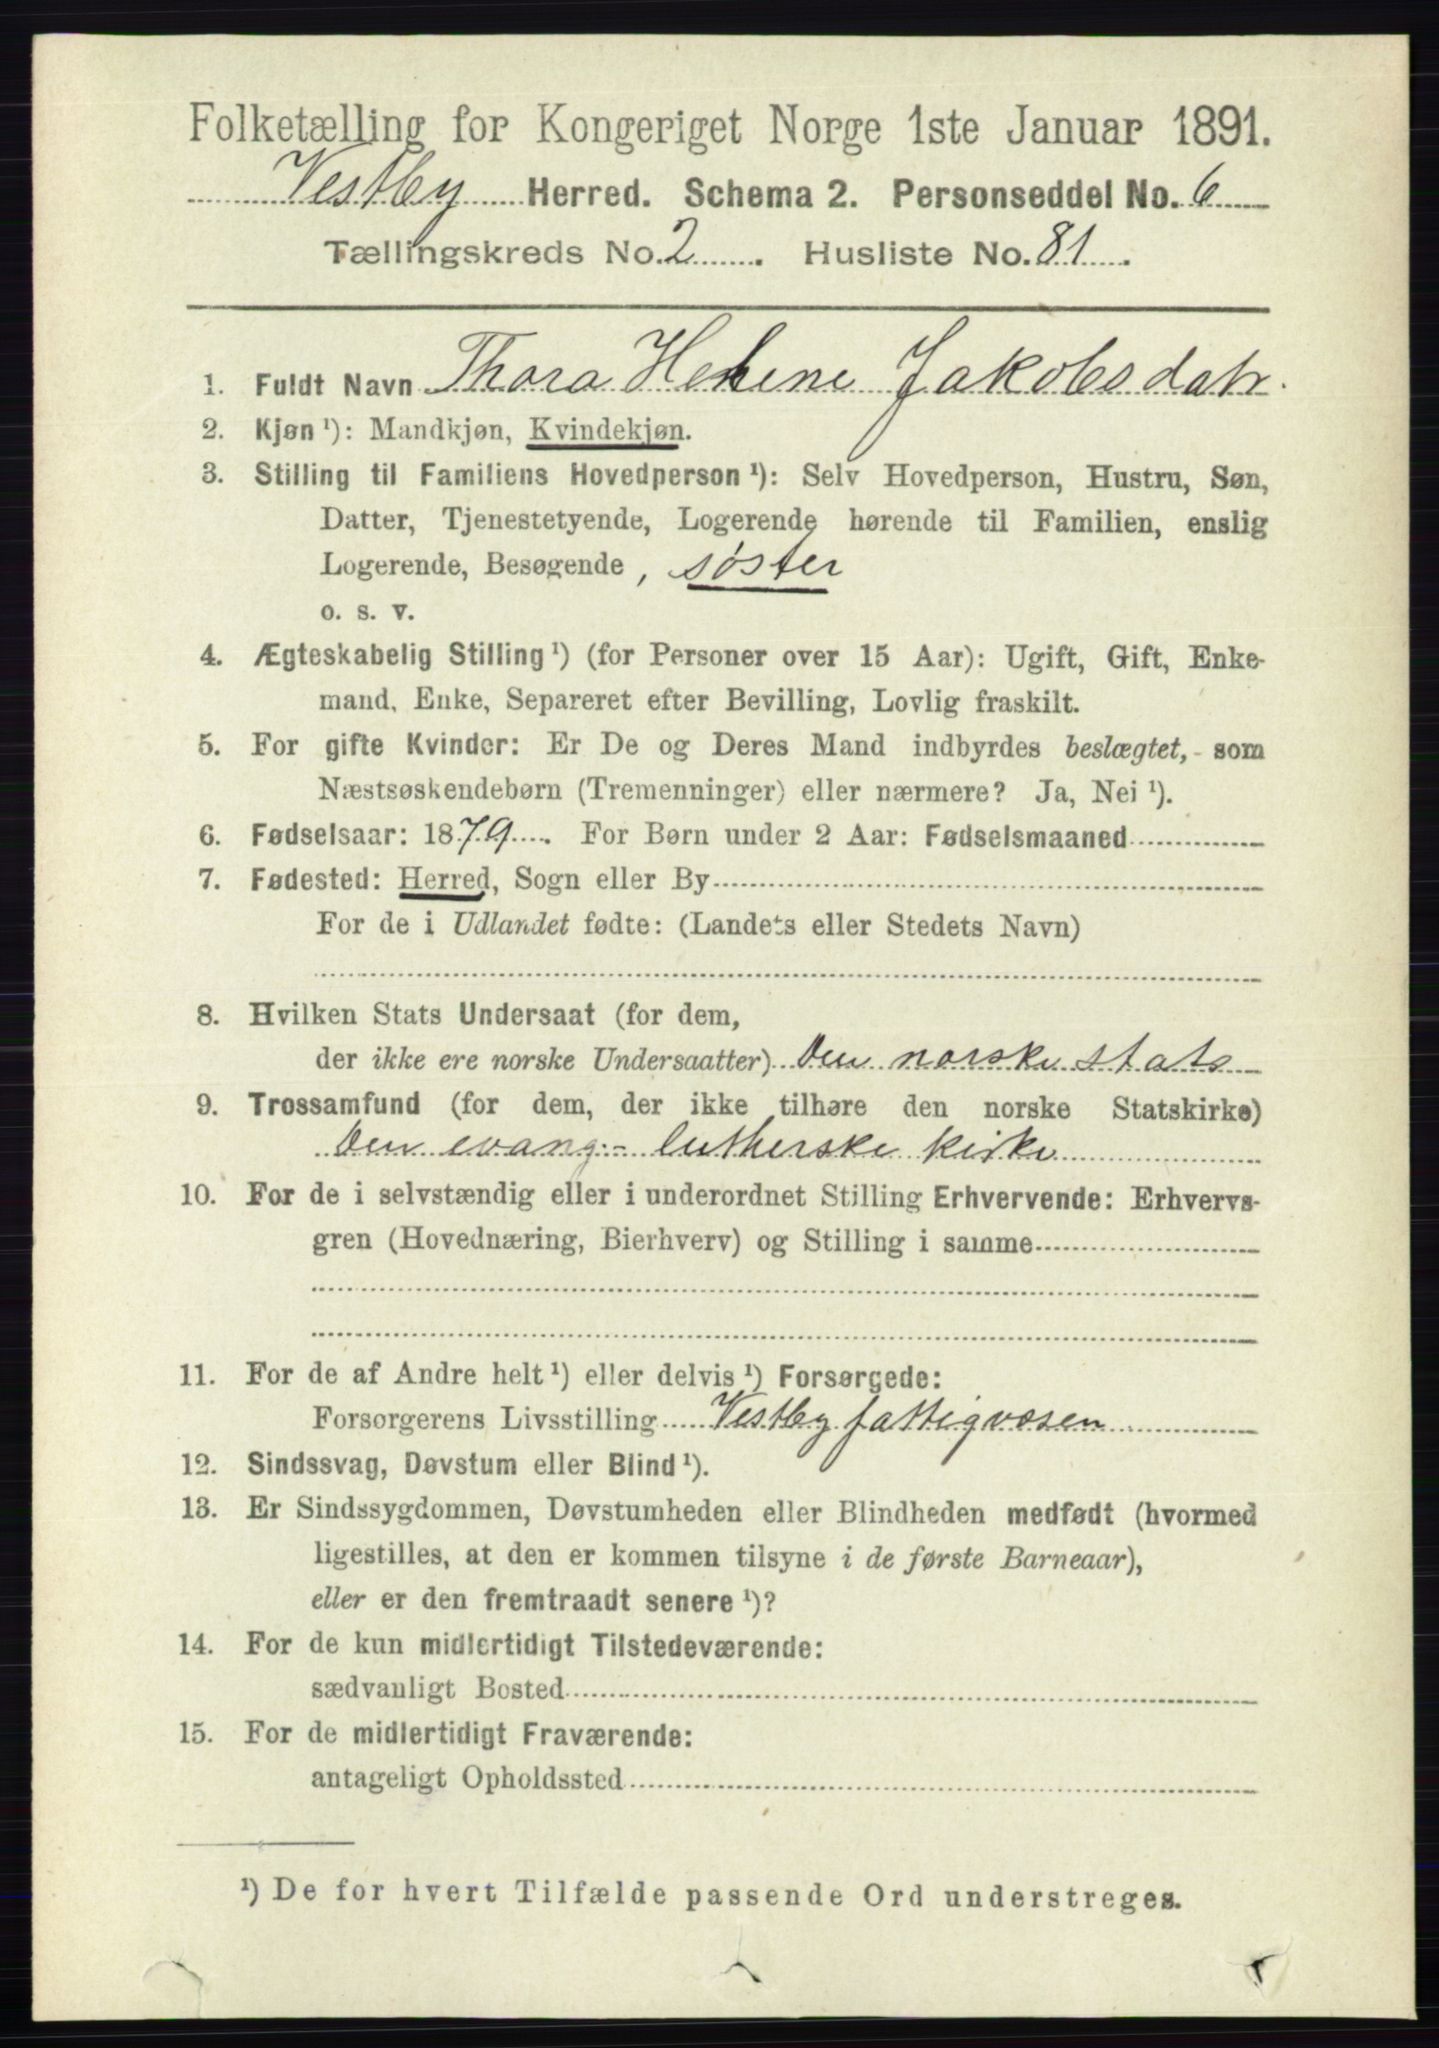 Folketælling for Kongeriget Norge 1ste Januar 1891.
Vestby Herred. Schema 2. Personseddel No. 6
Tællingskreds No. 2. Husliste No. 81.
1. Fuldt Navn Thora Helene Jakobsdatr.
2. Kjøn ¹): Mandkjøn, Kvindekjøn.
3. Stilling til Familiens Hovedperson ¹): Selv Hovedperson, Hustru, Søn,
Datter, Tjenestetyende, Logerende hørende til Familien, enslig
Logerende, Besøgende, søster
o. s. v.
4. Ægteskabelig Stilling ¹) (for Personer over 15 Aar): Ugift, Gift, Enke-
mand, Enke, Separeret efter Bevilling, Lovlig fraskilt.
5. For gifte Kvinder: Er De og Deres Mand indbyrdes beslægtet, som
Næstsøskendebørn (Tremenninger) eller nærmere? Ja, Nei ¹).
6. Fødselsaar: 1879. For Børn under 2 Aar: Fødselsmaaned
7. Fødested: Herred, Sogn eller By
For de i Udlandet fødte: (Landets eller Stedets Navn)
8. Hvilken Stats Undersaat (for dem,
der ikke ere norske Undersaatter) Den norske stats
9. Trossamfund (for dem, der ikke tilhøre den norske Statskirke)
Den evang.- lutherske kirke
10. For de i selvstændig eller i underordnet Stilling Erhvervende: Erhvervs-
gren (Hovednæring, Bierhverv) og Stilling i samme
11. For de af Andre helt ¹) eller delvis ¹) Forsørgede:
Forsørgerens Livsstilling Vestby fattigvæsen
12. Sindssvag, Døvstum eller Blind ¹).
13. Er Sindssygdommen, Døvstumheden eller Blindheden medfødt (hvormed
ligestilles, at den er kommen tilsyne i de første Barneaar),
eller er den fremtraadt senere ¹)?
14. For de kun midlertidigt Tilstedeværende:
sædvanligt Bosted
15. For de midlertidigt Fraværende:
antageligt Opholdssted
¹) De for hvert Tilfælde passende Ord understreges.